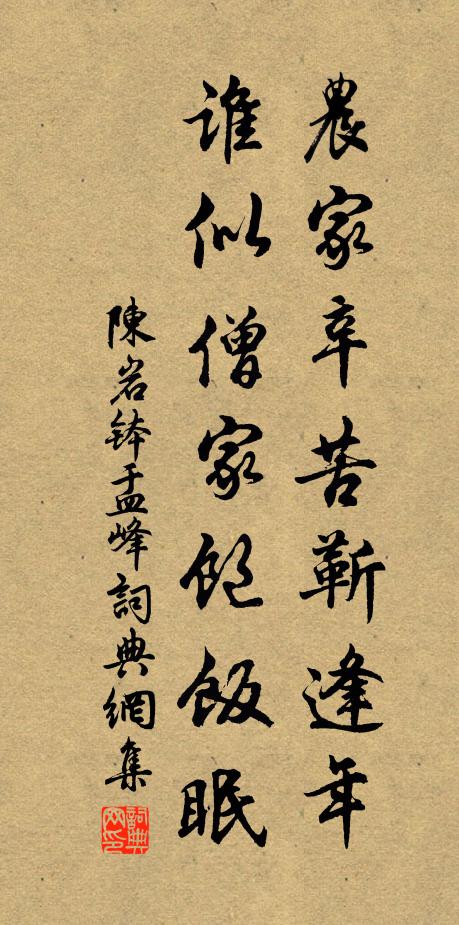 農家辛苦蘄逢年
誰似僧家飽飯眠
陳岩鉢盂峰詞典網集
詞典網印